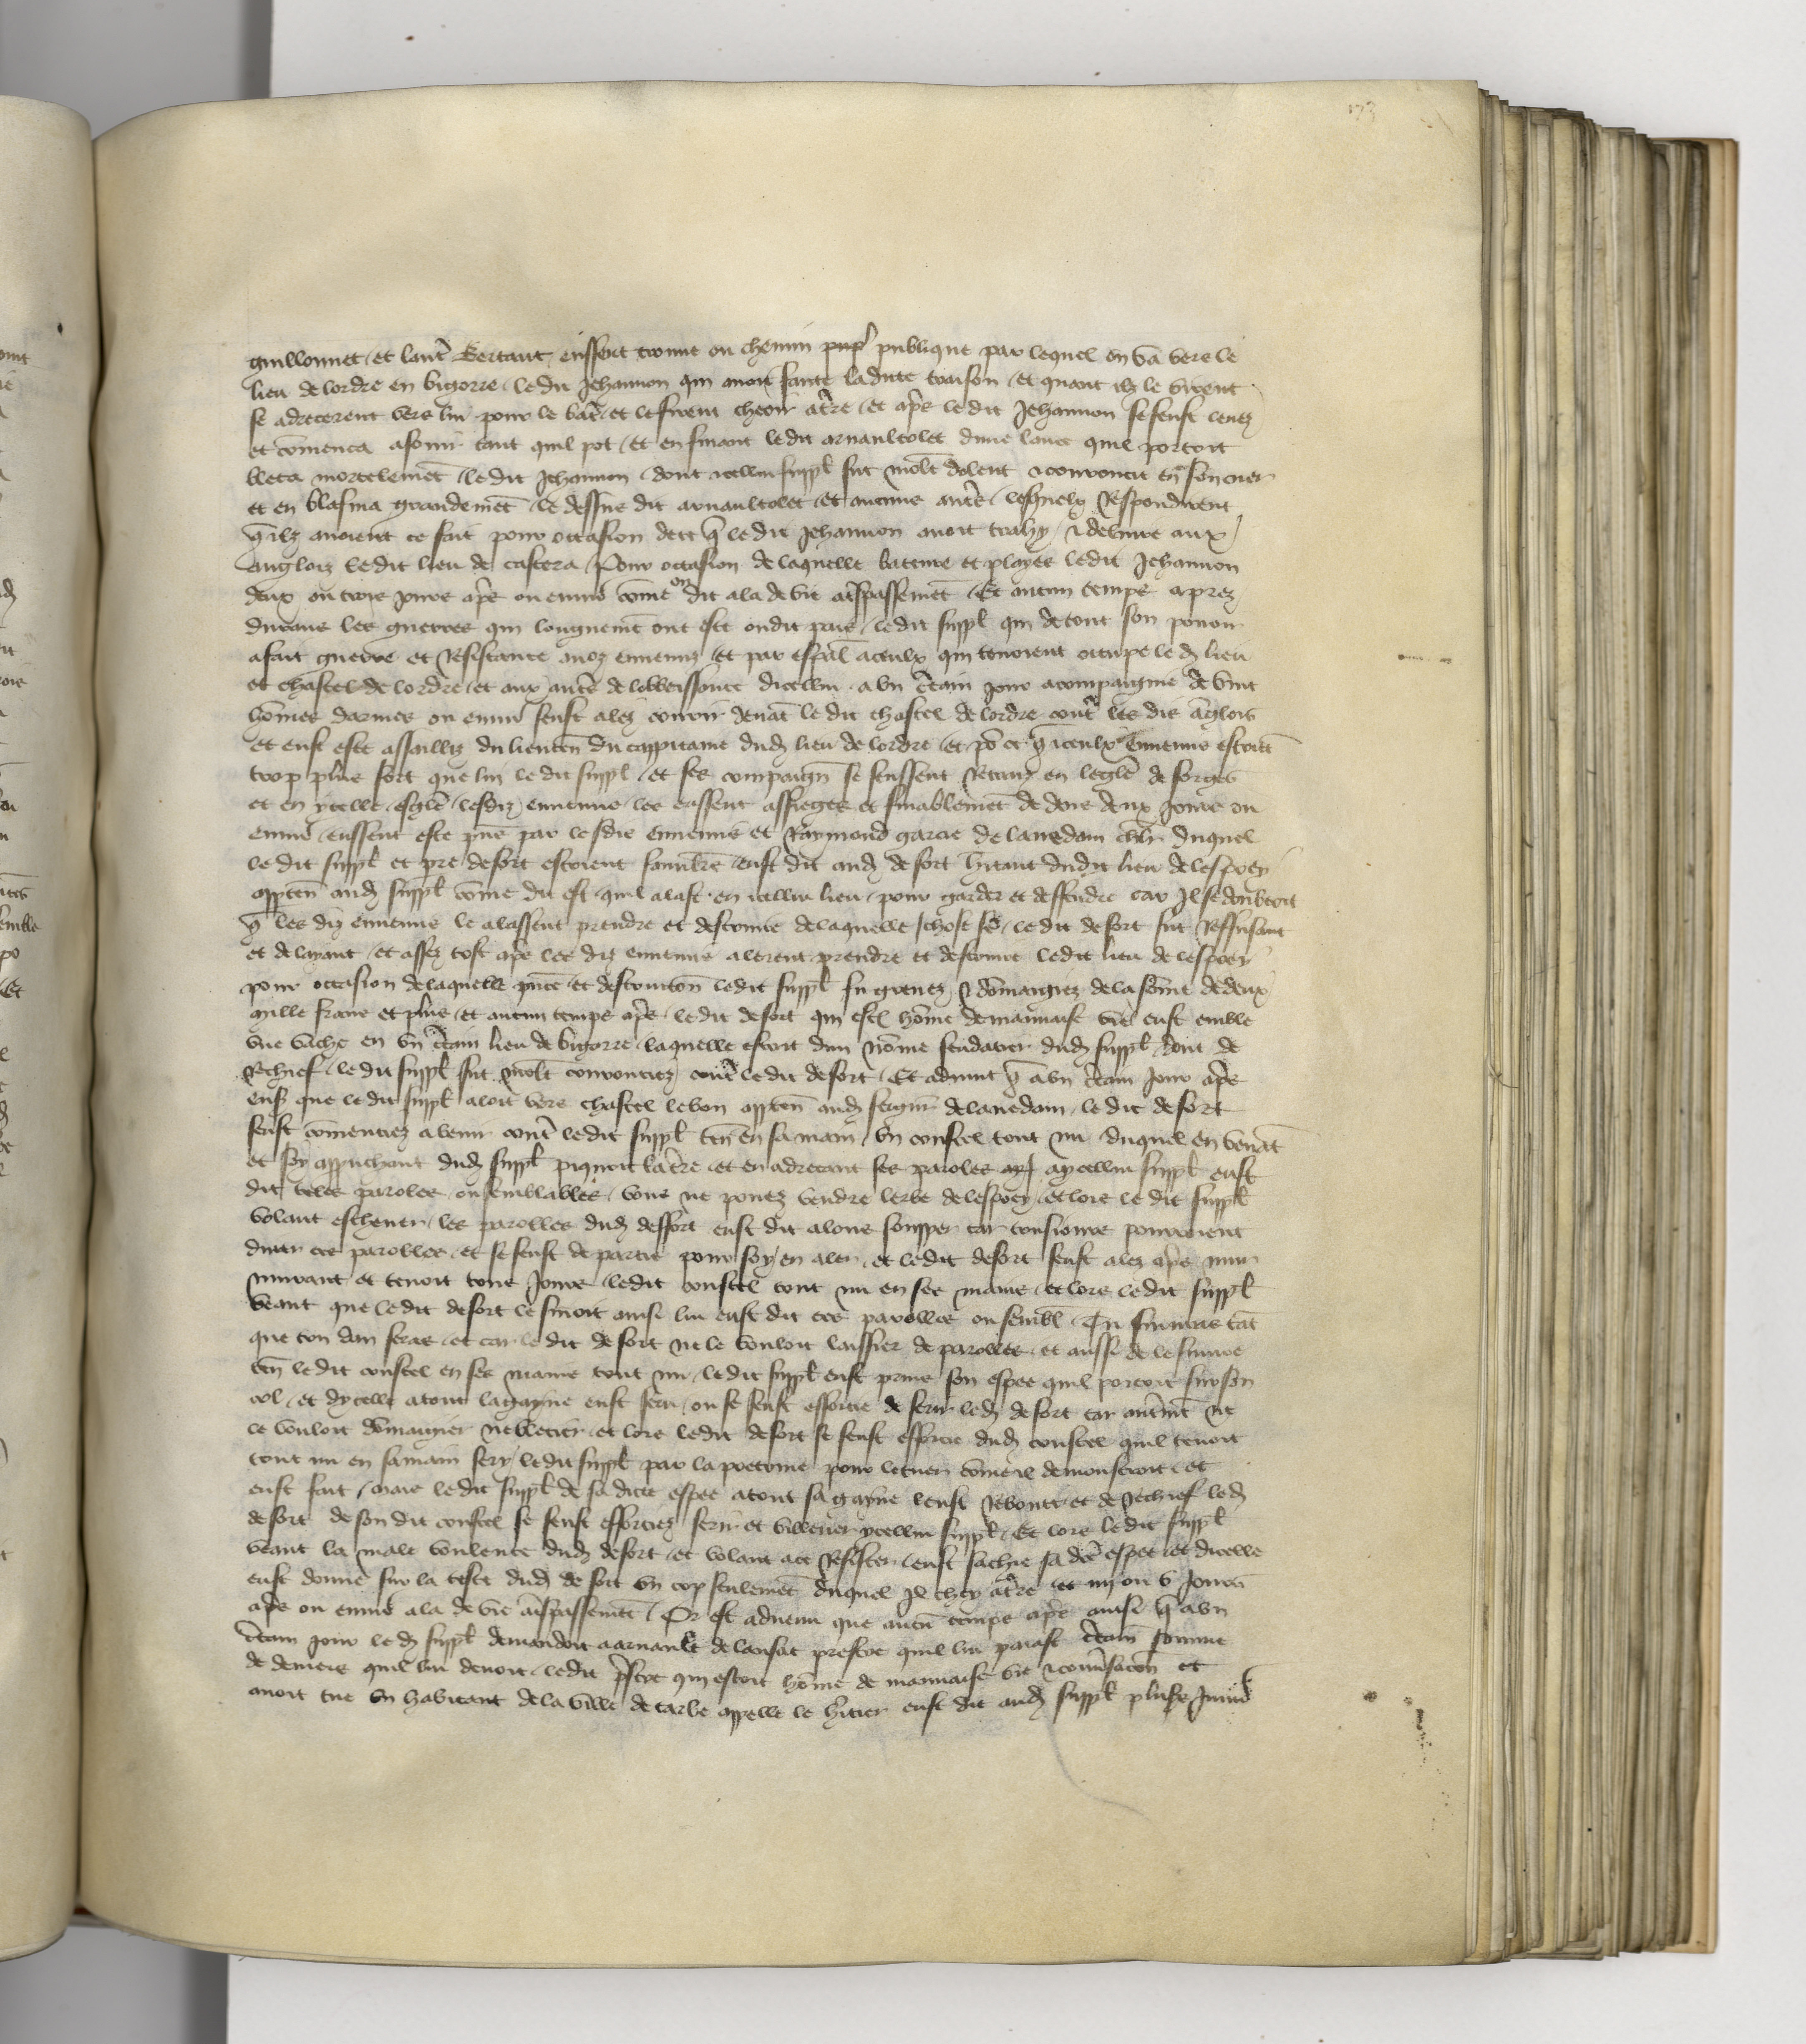 173
guillonnet et laut͛ Bertant eussent trouue ou chemin pup publique par lequel on va vers le
lieu de lordre en bigorre ledit Jehannon qui auoit faitte ladicte traison et quant ilz le virent
se adrecerent vers lui pour le bat͛ et le firent cheoir at͛re et ap͛s le dit Jehannon se feust leuez
et cōmenca afouir tant quil pot et en fuiant le dit arnaultolet dune lance quil portoit
bleca mortelemēt le dit Jehannon dont icellui suppl̄ fut molt dolent et courroucie en son cuer
et en blasma grandemēt le dessus dit arnaultolet et aucuns aut͛s lesquelz Respondirent
q̄ ilz auoient ce fait pour occasion dece q̄ le dit Jehannon auoit trahy et deliure aux
anglois ledit lieu de castera Pour occasion de laquelle bateure et playes ledit Jehannon
deux ou trois jours ap͛s ou enuirō cōme on dit ala de vie at͛spassemēt Et aucun temps aprez
durans les guerres qui longuemēt ont este oudit pais le dit suppl̄ qui de tout son pouoir
afait guerre et Resistance anoz ennemis et par esp̄al aceulx qui tenoient occupe led lieu
et chastel de lordre et aux aut͛s de lobeissance dicellui a vn c͛tain jour acompaigne de vint
hōmes darmes ou enuirō feust alez courir deuāt le dit chastel de lordre cont͛ les dis āglois
et eust este assailliz du lieuten̄ du cappitaine dud lieu de lordre et po͛ ce q̄ iceulx ennemis estoiēt
trop plus fort que lui le dit suppl̄ et ses compaign̄ se feussent Retraiz en leglē de forges
et en ycelle esglē lesdiz ennemis les eussent assiegez et finablemēt dedens deux jours ou
enuirō eussent este prīs par lesdis ennemis et Raymond garcie de lauedam chlr duquel
le dit suppl̄ et pre defort estoient familie͛s eust dit aud defort hitant dudit lieu de lespoey
apptēn aud suppl̄ cōme dit est quil alast en icellui lieu pour garder et deffendre car Il se doubtoit
q̄ les diz ennemis le alassent prendre et destruire de laquelle chose fe͛ le dit defort fut Reffusant
et delayant et assez tost ap͛s les diz ennemis alerent prendre et destruire ledit lieu de lespoey
pour occasion de laquelle prīse et destruction̄ ledit suppl̄ fu greuez et dōmagiez de la sōme de deux
mille frans et plus et aucun temps ap͛s le dit defort qui est hōme de mauuaise vie eust emble
vne vache en vn c͛tain lieu de bigorre laquelle estoit dun nōme fendatier dud suppl̄ dont de
Rechief le dit suppl̄ fut molt courrouciez cont͛ le dit defort Et aduint q̄ a vn c͛tain jour ap͛s
ens que le dit suppl̄ aloit vers chastel lebon apptēn aud seignr̄ de lauedam le dit defort
feust cōmenciez avenir cont͛ ledit suppl̄ ten̄ en sa main vn coustel tout nu duquel en venāt
et soy appuchant dud suppl̄ piquoit lat͛re et en adrecant ses paroles ay aycellui suppl̄ eust
dit teles paroles ou semblables vous ne pouez vendre lerbe de lespoey et lors le dit suppl̄
volant escheuer les parolles dud deffort eust dit alons soupper car tousiours pourroient
durer ces parolles et se feust departiz pour soy en aler et ledit defort feust alez ap͛s mur
murant et tenoit tous jours ledit coustel tout nu en ses mains et lors ledit suppl̄
veant que le dit defort le suiuoit ainsi lui eust dit ces parolles ou sembl̄ Tu suiuras tāt
que ton dan feras et car le dit defort ne le vouloit laissier de parolles et aussi de le suiure
ten̄ le dit coustel en ses mains tout nu le dit suppl̄ eust prins son espee quil portoit sur son
col et dycelle atout lagayne eust feru ou se feust efforcie de ferir led defort car aut͛mēt ne
le vouloit dōmagier ne blecier et lors ledit defort se feust efforcie dud coustel quil tenoit
tout nu en samain ferir ledit suppl̄ par la poctrine pour letuer cōme il demonstroit et
eust fait mais le dit suppl̄ de sa dicte espee atout sa gayne leust Reboute et de Rechief led
defort de son dit coustel se feust efforciez ferir et villener ycellui suppl̄ Et lors le dit suppl̄
veant la male voulente dud defort et volant ace Resister eust sachie sa dc̄e espee et dicelle
eust donne sur la teste dud defort vn cop seulemēt duquel Il chey at͛re et iiij ou v jours
ap͛s ou enuirō ala de vie at͛spassemēt Or est aduenu que aucū temps ap͛s ainsi q̄ a vn
c͛tain jour led suppl̄ demandoit a arnault de lansac prestre quil lui paiast c͛taine somme
de deniers quil lui deuoit le dit p͛stre qui estoit hōme de mauuaise vie et conu͛sacōn et
auoit tue vn habitant de la ville de tarbe appelle le h͛itier eust dit aud suppl̄ plus͛s Iniur͛